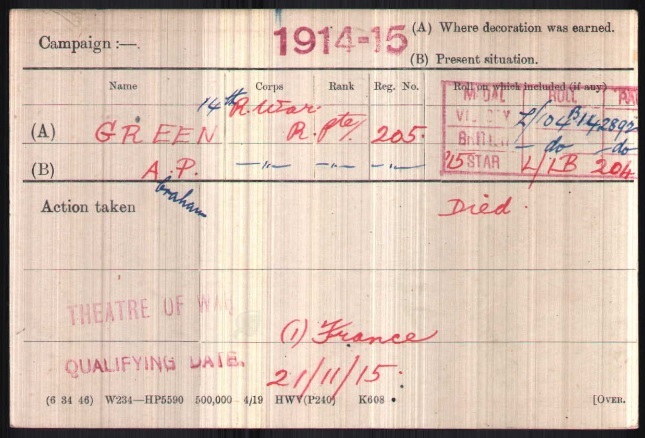 Campaign :—. 1914-15 (A) Where decoration was earned.
(B) Present situation.
Name Corps Rank Reg. No. Roll on which included (if any)
14th R. War. MEDAL ROLL PAGE
(A) GREEN R. Pte/ 205. VICTORY L/104B14 2892
BRITISH — do — do-
(B) A.P. —"— —"— —"— 15 STAR L/1B 204
braham
Action taken Died.
THEATRE OF WAR
(1) France
QUALIFYING DATE.
21/11/15.
(6 34 46) W234—HP5590 500,000 4/19 HWV(P240) K608 [OVER.